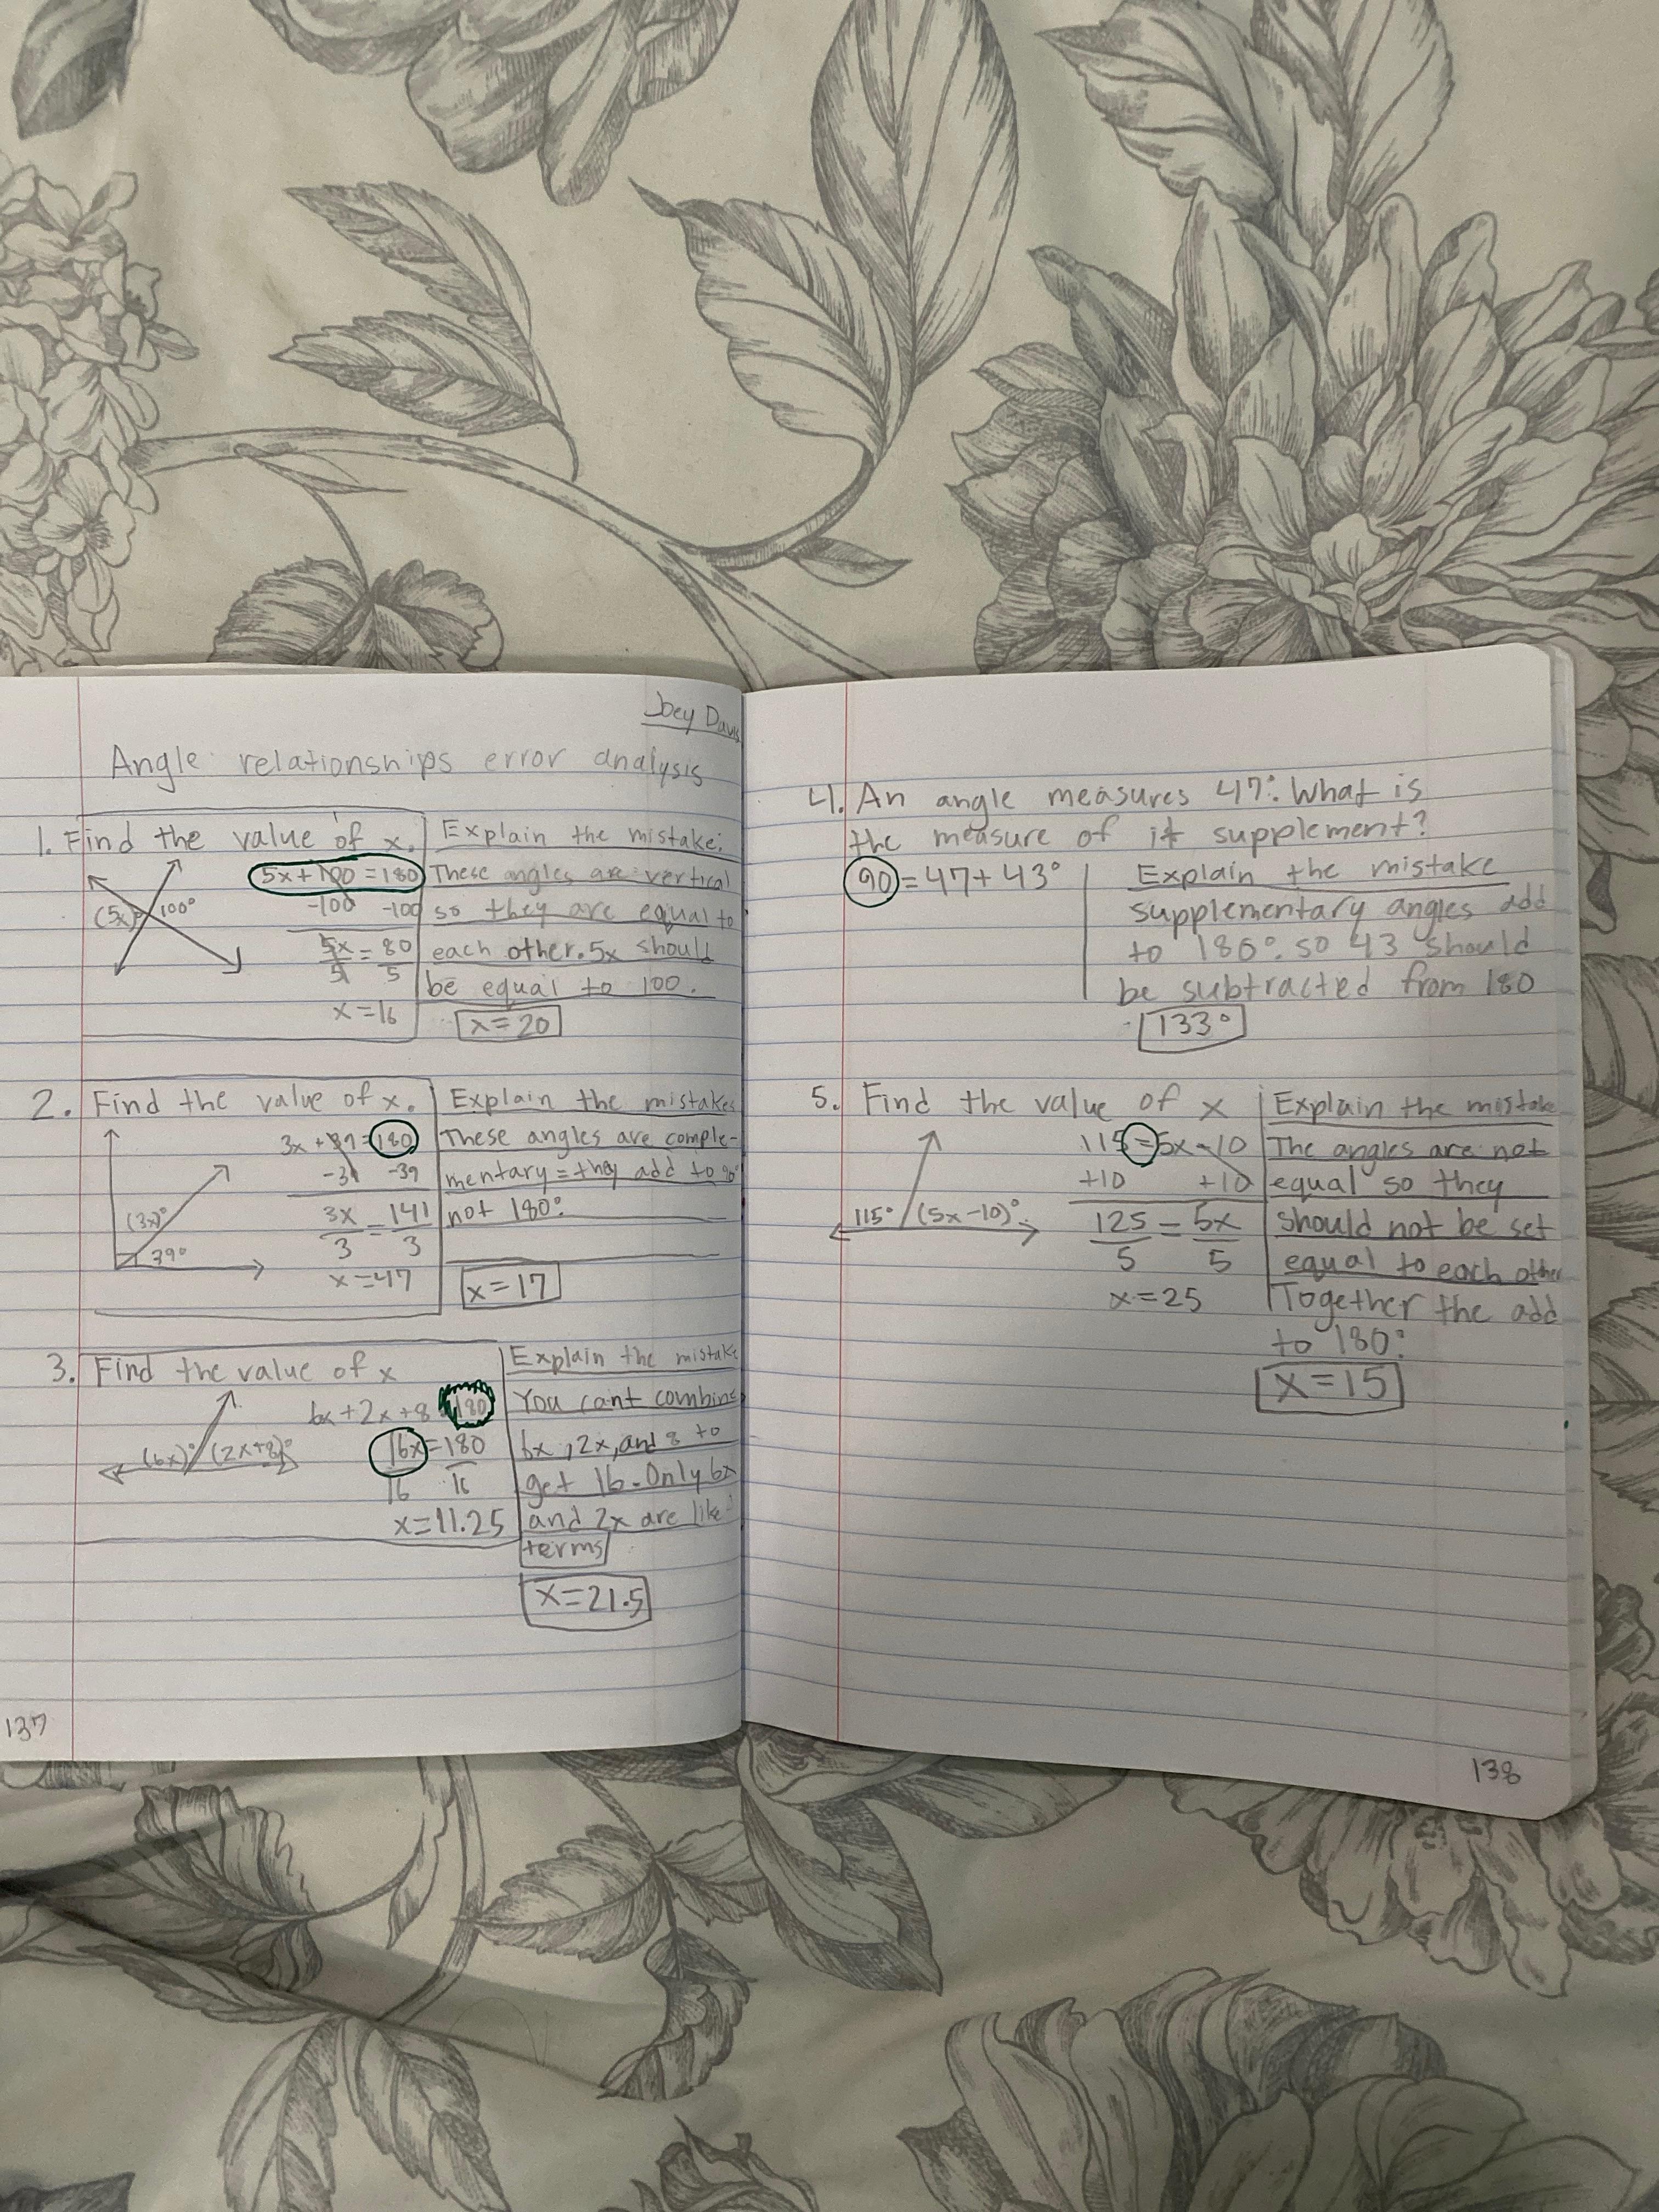 Joey Davis
Angle relationships error analysis
1. Find the value of x.
5x+100=180
-100 -100
5x = 80
5 5
x=16
(5x)° 100°
Explain the mistake:
These angles are vertical
so they are equal to
each other. 5x should
be equal to 100.
x=20
2. Find the value of x.
3x+39=180
-39 -39
3x = 141
3 3
x=47
(3x)°
39°
Explain the mistakes
These angles are comple-
mentary = they add to 90°
not 180°.
x=17
3. Find the value of x
6x+2x+8=180
16x=180
16 16
x=11.25
(6x)° (2x+8)°
Explain the mistake
You cant combine
6x, 2x, and 8 to
get 16. Only 6x
and 2x are like
terms
x=21.5
137
4. An angle measures 47°. What is
the measure of it supplement?
90=47+43°
Explain the mistake
supplementary angles add
to 180°. so 43 should
be subtracted from 180
133°
5. Find the value of x
115=5x-10
+10 +10
125 = 5x
5 5
x=25
115° (5x-10)°
Explain the mistake
The angles are not
equal so they
should not be set
equal to each other
Together the add
to 180°.
x=15
138